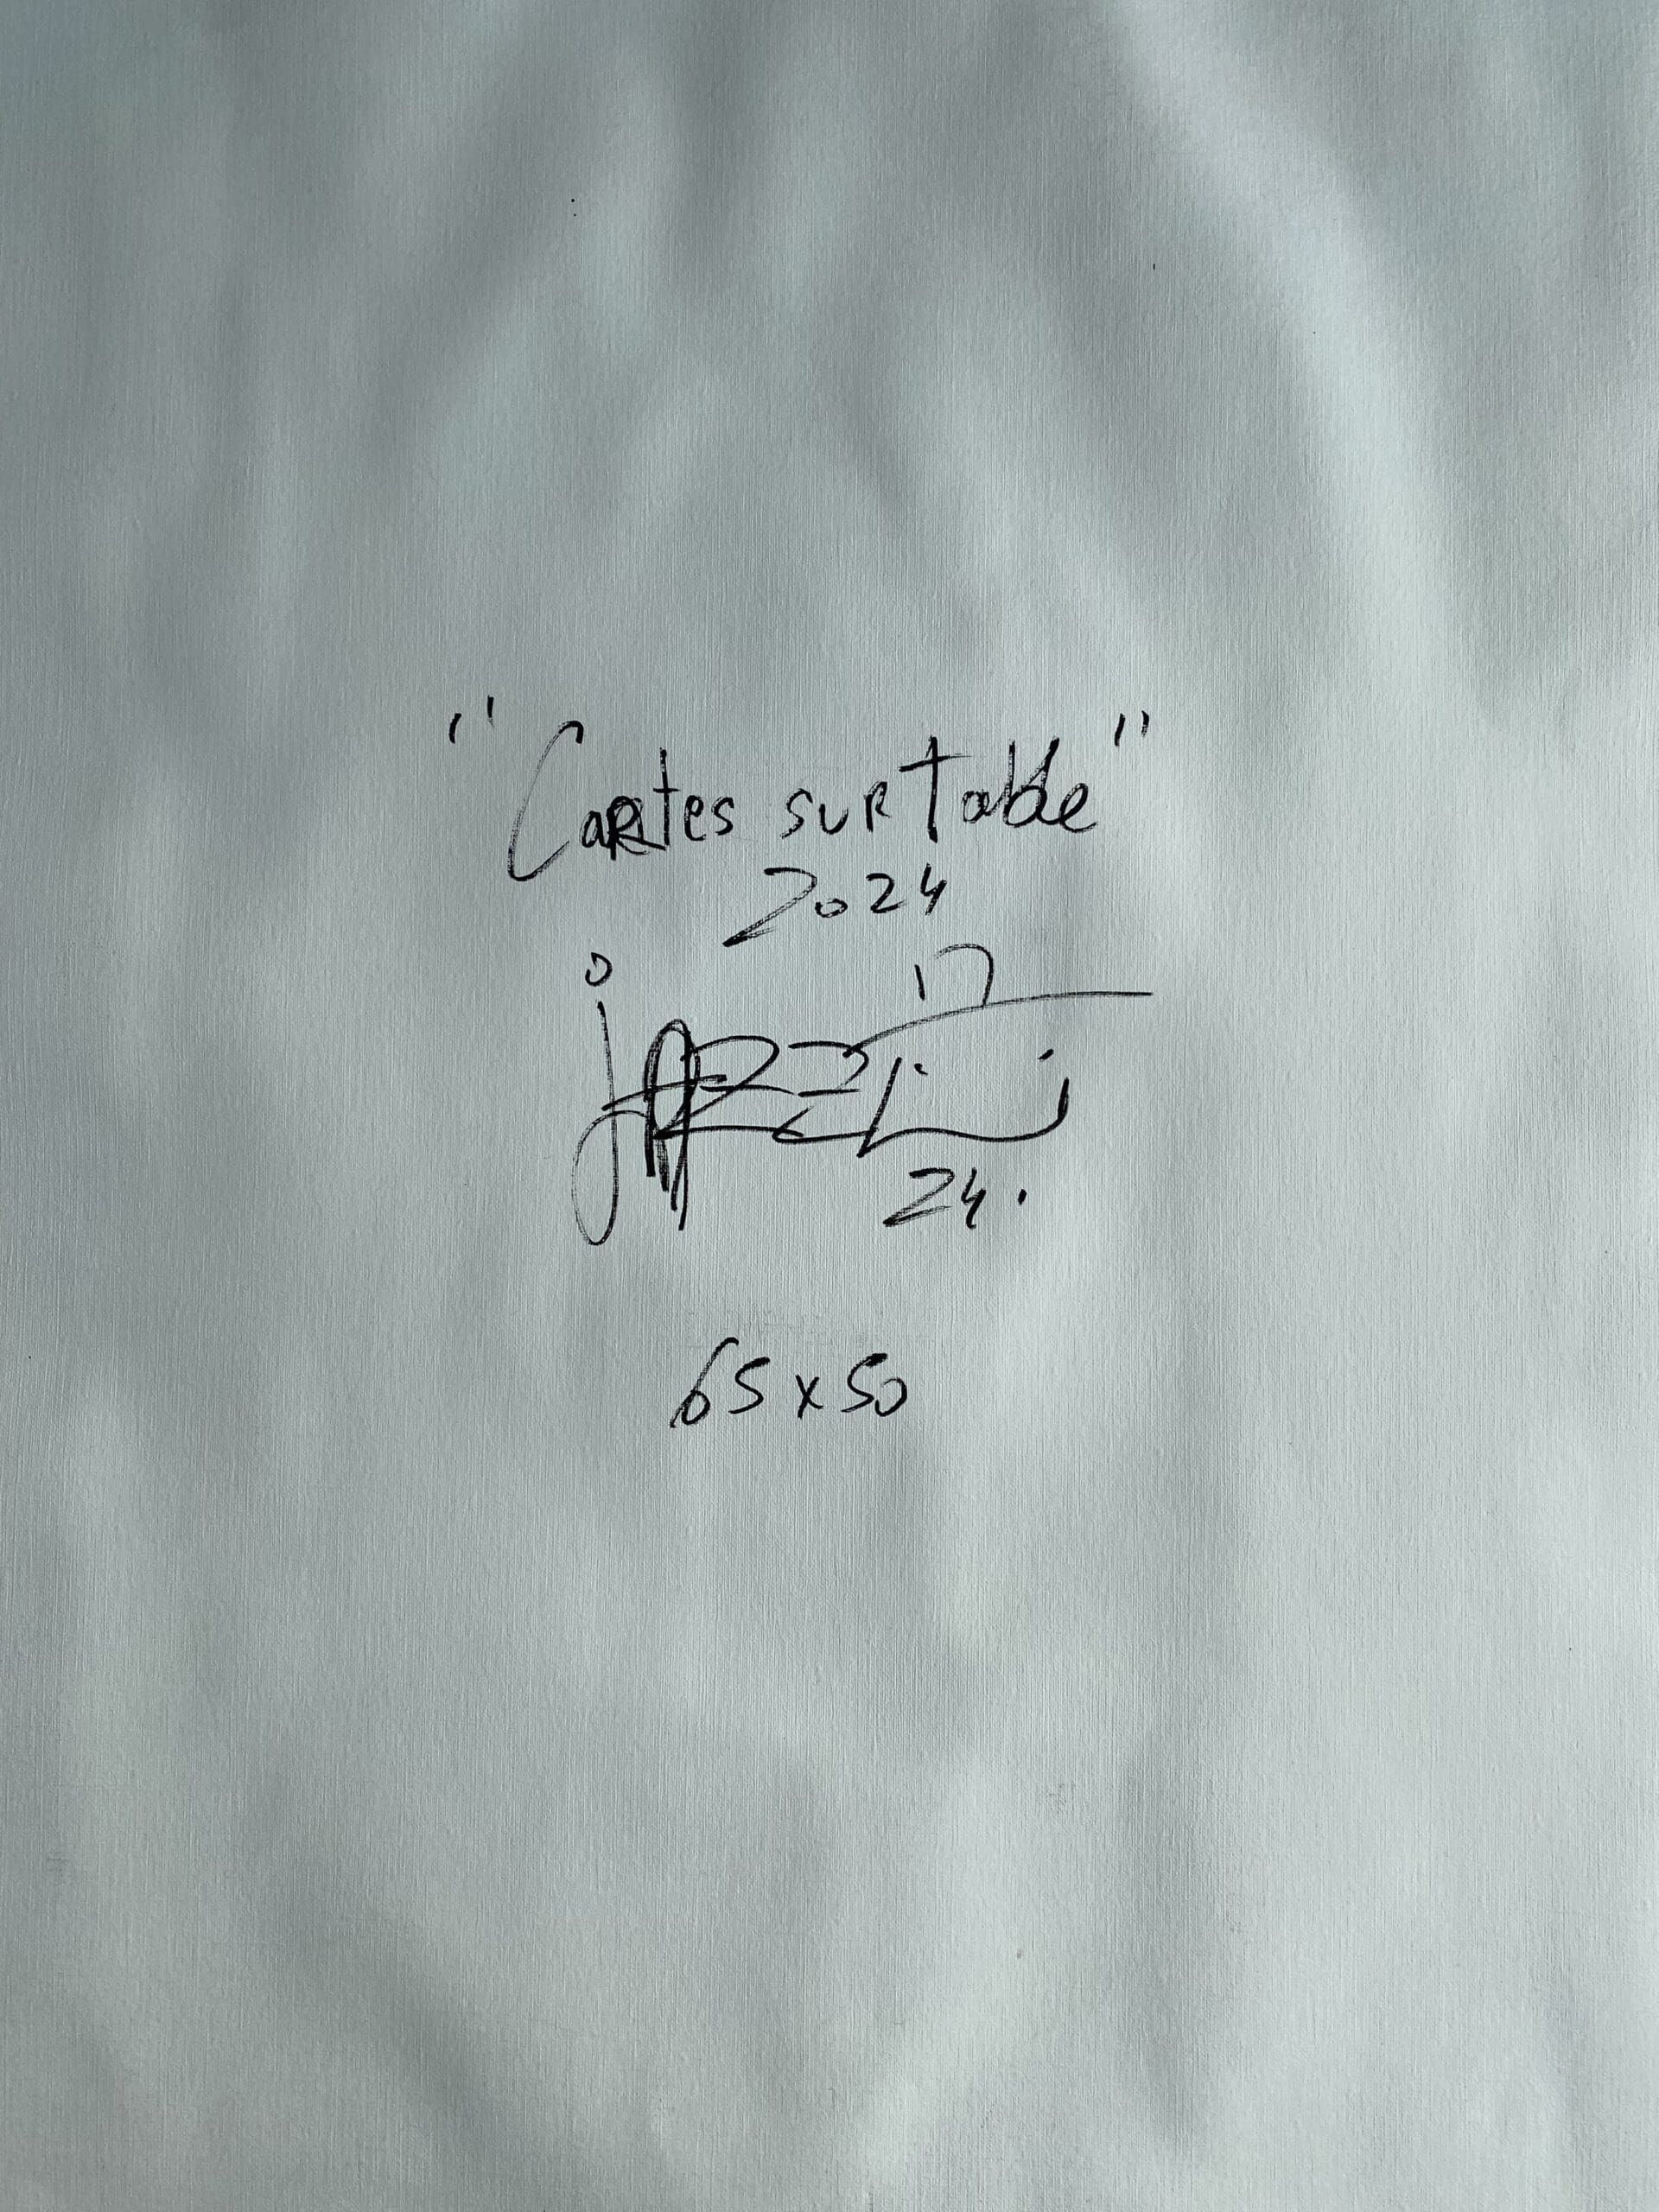 "Cartes sur Table"
2024
17
24.
65x50